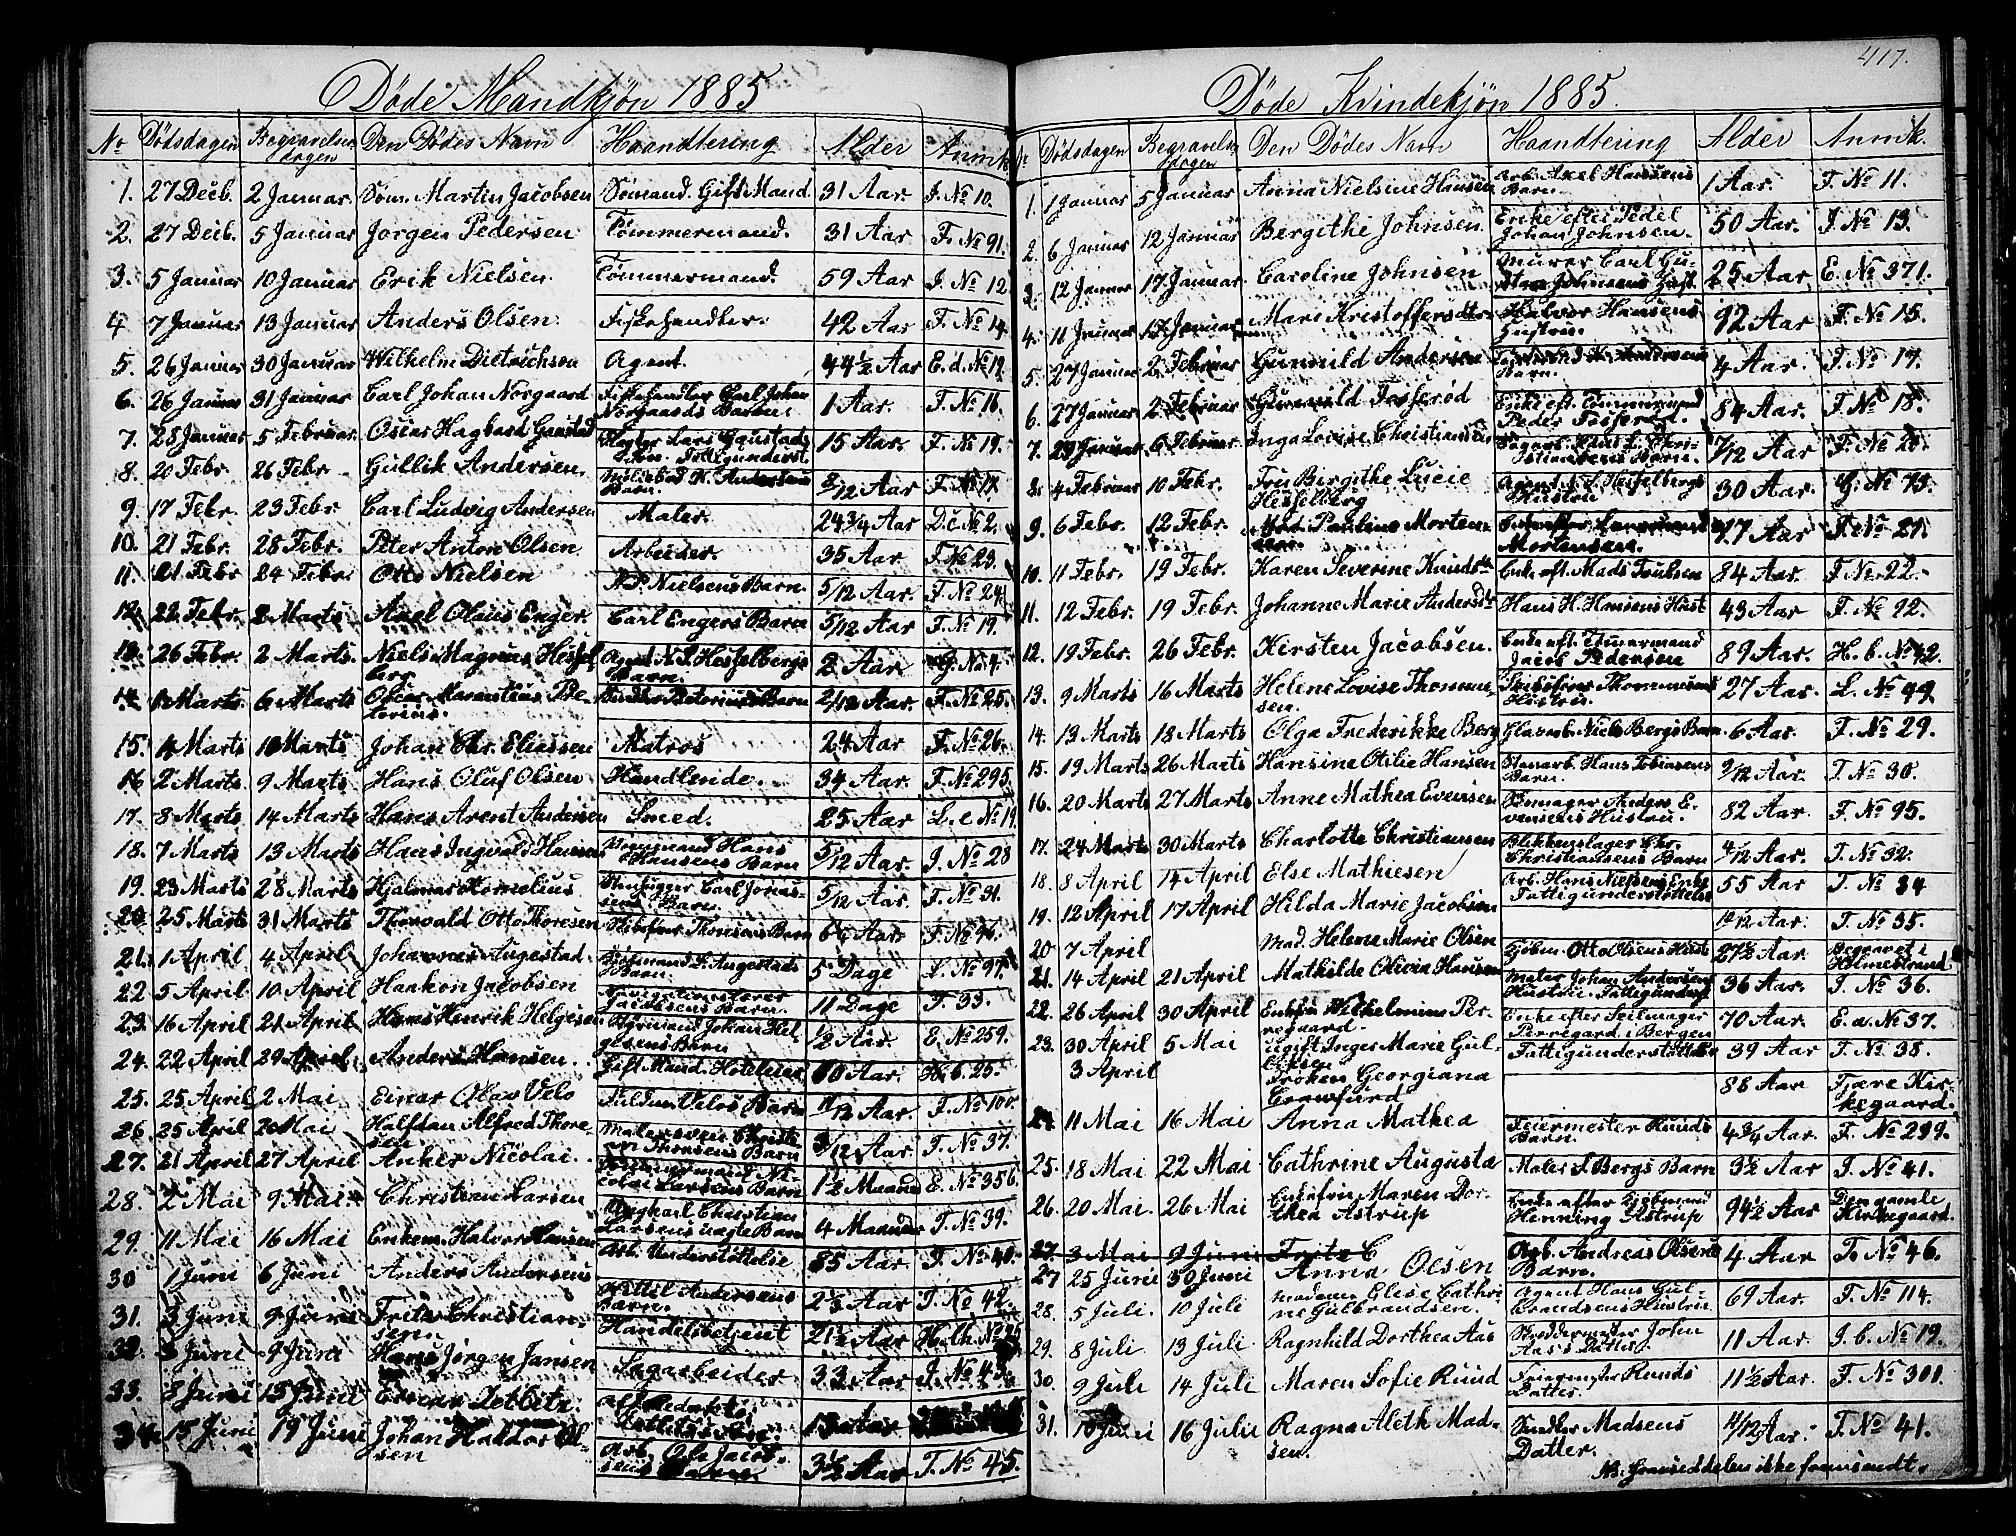 417.
Døde Mandkjøn 1885
No Dødsdagen Begravelsesdagen Den Dødes Navn Haandtering Alder Anmk
1. 27 Decb. 2 Januar. Søm. Martin Jacobsen Sømand. Gift Mand. 31 Aar. J. No 10.
2. 27 Decb. 5 Januar Jørgen Pedersen Tømmermand. 31 Aar F. No 91.
3. 5 Januar 10 Januar Erik Nielsen. Tømmermand. 59 Aar J. No 12
4. 7 Januar 13 Januar Anders Olsen. Fiskehandler. 42 Aar F. No 14.
5. 26 Januar 30 Januar Wilhelm Dietrichson Agent. 44½ Aar E. d. No 19.
6. 26 Januar 31 Januar Carl Johan Norgaard Fiskehandler Carl Johan Norgaards Barn. 1 Aar. F. No 16.
7. 28 Januar 5 Februar. Hagbard Gaustad Lars Gaustads Søn. Fattigunderst. 15 Aar. F. No 19.
8. 20 Febr. 26 Febr. Gullik Andersen. K. Andersens Barn. 3/12 Aar F. No 17.
9. 17 Febr. 23 Febr. Carl Ludvig Andersen Maler. 24¾ Aar D.c No 2.
10. 21 Febr. 28 Febr. Peter Anton Olsen Arbeider. 35 Aar F. No 23.
11. 21 Febr 24 Febr. Otto Nielsen Nielsens Barn. 5/12 Aar. F. No 24.
12. 22 Febr. 2 Marts. Axel Olaus Enger. Carl Engers Barn 5/12 Aar F. No 19.
13. 26 Febr. 2 Marts. Niels Magnus Hesselberg Agent N. S. Hesselbergs Barn. 2 Aar G. No 4.
14. 1 Marts. 6 Marts. Petorius. Petorius Barn 2/12 Aar. F. No 25.
15. 4 Marts 10 Marts Johan Chr. Eliassen Matros 24 Aar F. No 26.
16 2 Marts. 9 Marts. Hans Oluf Olsen Handlende. 34 Aar. F. No 295.
17. 8 Marts 14 Marts Hans Arent Andersen Smed. 25 Aar L. e No 19.
18. 7 Marts 13 Marts Hans Ingvald Hansen Hans Hansens Barn 5/12 Aar. J. No 28
19. 23 Marts 28 Marts Hjalmar Kornelius Stenhugger Carl Jonassens Barn. 5/12 Aar. F. No 31.
20. 25 Marts 31 Marts Thorvald Otto Thoresen Thoresens Barn Aar. F. No 96.
21. 1 April 4 April Johannes Augestad. L. Augestads Barn. 5 Dage L. No 97.
22 5 April 10 April Haakon Jacobsen Jacobsens Barn. 11 Dage F 33.
23. 16 April 21 April Hans Henrik Helgesen Johan Helgesens Barn ½ Aar. E. No 259.
24. 22 April 29 April. Anders Hansen. Gift Mand. 60 Aar. H. b. 25.
25. 25 April 2 Mai Einar Olav Velo Velos Barn 11/12 Aar. F. No 100.
26 25 April 2 Mai Halfdan Alfred Thoresen Thoresens Barn 3/12 Aar. F. No 37.
27. 21 April 27 April Anker Nicolai. Nicolai Larsens Barn 1½ Maaned E. No 356.
28. 2 Mai 9 Mai. Christian Larsen Christian Larsens uægte Barn 4 Maaneder F. No 39.
29. 11 Mai 16 Mai Enkem. Halvor Hansen Arb. Understøttelse 85 Aar F. No 40.
30 1 Juni 6 Juni Anders Andersen Kittil Andersens Barn. 2½ Aar F. No 42.
31. 3 Juni 9 Juni Fritz Christiansen Handelsbetjent 21½ Aar
32. 3 Juni 9 Juni Hans Jørgen Jansen Sagarbeider 33 Aar J. No 43.
33. 8 Juni 13 Juni Einar
34. 15 Juni 19 Juni Johan Haldor Olsen Arb. Ole Jacobsens Barn. 3½ Aar F. No 45.
Døde Kvindekjøn 1885.
Dødsdagen Begravelsesdagen Den Dødes Navn Haandtering Alder Anmk.
1. 1 Januar 5 Januar Anna Nielsine Hansen Arb. Axel Hansens Barn. 1 Aar. F. No 11.
2. 6 Januar 12 Januar Bergithe Johnsen. Enke efter Pedel Johan Johnsen. 50 Aar. J. No 13.
3. 12 Januar 17 Januar. Caroline Johnsen Murer Carl Gustav Johnsens Hust. 25 Aar E. No 371.
4. 11 Januar 17 Januar Mari Kristoffersdtr. Halvor Hansens Hustru. 92 Aar F. No 15.
5. 27 Januar 2 Februar Gunnild Andersen Andersens Barn. 4 Aar. F. No 17.
6. 27 Januar 2 Februar Gunnild Fosserød Enke eft. Tømmermand Peder Fosserød. 84 Aar. F. No 18.
7. 29 Januar 6 Februar. Inga Lovise Christiansen Hans L. Christiansens Barn. 7/12 Aar F. No 20.
8. 4 Februar 10 Febr. Fru Birgithe Lucie Hesselberg Agent N. S. Hesselbergs Hustru 30 Aar. G. No 73.
9. 6 Febr. 12 Febr. Mad. Pauline Mortensen. Mortensen. 77 Aar F. No 21.
10. 11 Febr. 19 Febr. Karen Severine Knudsdtr Enke eft. Mads Trulsen 84 Aar. F. No 22.
11. 12 Febr. 19 Febr. Johanne Marie Andersdtr Hans H. Hansens Hust 43 Aar F. No 92.
12. 19 Febr. 26 Febr. Kirsten Jacobsen. Enke eft. Timmermand Jacob Pedersen 89 Aar. H. b. No 42.
13. 9 Marts 16 Marts Helene Lovise Thommesen. Skibsfører Thommesens Hustru 27 Aar. L. No 99.
14. 13 Marts 18 Marts Olga Frederikke Berg Glasarb. Niels Bergs Barn. 6 Aar. F. No 29.
15. 19 Marts 26 Marts Hansine Otilie Hansen Stenarb. Hans Tobiasens Barn 9/12 Aar. F. No 30.
16. 20 Marts 27 Marts Anne Mathea Evensen Anders Evensens Hustru. 82 Aar F. No 95.
17. 24 Marts 30 Marts Charlotte Christiansen Blikkenslager Chr. Christiansens Barn 4/12 Aar. F. No 32.
18. 8 April 14 April Else Mathiesen Arb. Hans Nielsens Enke Fattigunderstøttelse 55 Aar F. No 34
19. 12 April 17 April Hilda Marie Jacobsen 10/12 Aar. F. No 35.
20 7 April Mad. Helene Marie Olsen Otto Olsens Hustr 27½ Aar Begravet i Holmestrand.
21. 14 April 21 April Mathilde Olivia Hansen Maler Johan Andersens Hustru. Fattigunderst 36 Aar. F. No 36.
22. 26 April 30 April Enkefru Wilhelmine Perregaard. Enke efter Seilmager Perregaard i Bergen 70 Aar. E. a. No 37.
23. 30 April 5 Mai ugift Inger Marie Gulliksen Fattigunderstøttelse 39 Aar F. No 38.
3 April Frøken Georgiana Crawfurd 88 Aar Tjøre Kirkegaard.
24. 11 Mai 16 Mai Anna Mathea Feiermester Ruuds Barn. 4¾ Aar. F. No 299.
25. 18 Mai 22 Mai Cathrine Augusta Maler S. Bergs Barn 3½ Aar F. No 41.
26. 20 Mai 26 Mai Enkefru Maren Dorthea Astrup Enke efter Henning Astrup 94½ Aar Den gamle Kirkegaard.
27. 3 Mai 9 Juni Fritz C
27 25 Juni 30 Juni Anna Olsen Arb. Andreas Olsens Barn. 4 Aar F. No 46.
28. 5 Juli. 10 Juli Madame Elise Cathrine Gulbrandsen. Agent Hans Gulbrandsens Hustru 69 Aar. F. No 114.
29. 8 Juli 13 Juli Ragnhild Dorthea Aas Skreddermester John Aas's Datter. 11 Aar. J. b. No 19.
30. 9 Juli 14 Juli Maren Sofie Ruud Feiermester Ruuds Datter. 11½ Aar. F. No 301.
31. 10 Juni 16 Juli Ragna Aleth Madsen. Snedker Madsens Datter. 4/12 Aar. F. No 41.
ikke fremsendt.